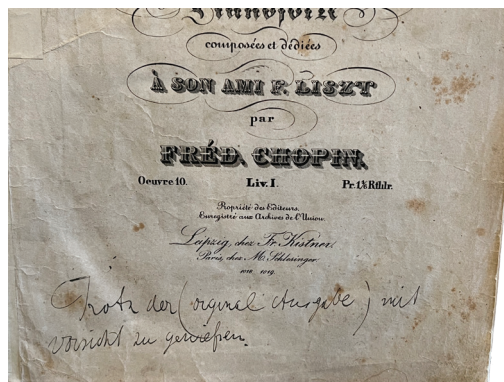 Pianoforte
composées et dédiées
À SON AMI F. LISZT
par
FRÉD. CHOPIN.
Oeuvre 10. Liv. I. Pr. 1⅙ Rthlr.
Propriété des Editeurs.
Enregistré aux Archives de l'Union.
Leipzig, chez Fr. Kistner.
Paris, chez M. Schlesinger
1018. 1019.
Trotz der (original Ausgabe) mit
Vorsicht zu genießen.